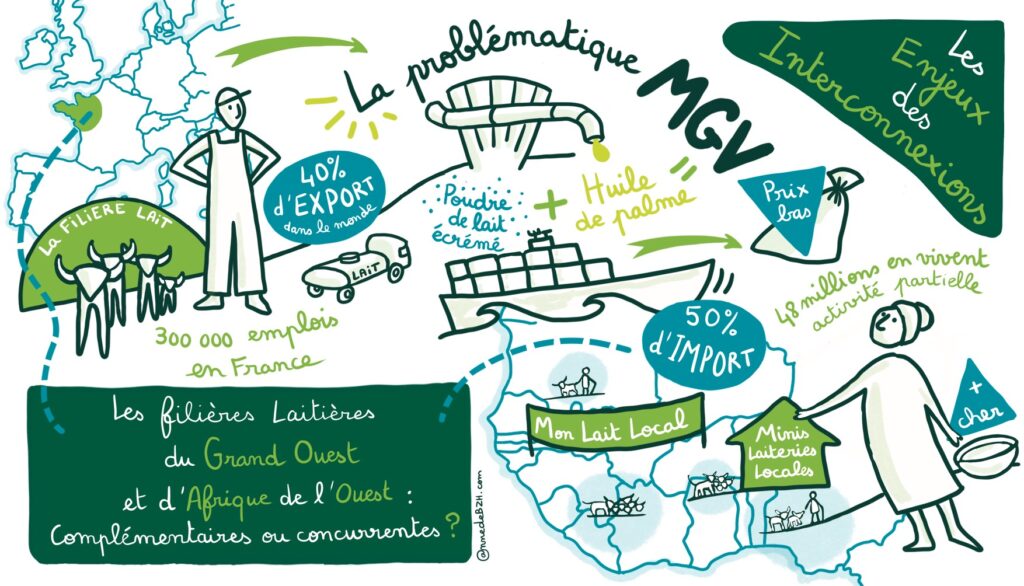 La problématique
MGV
Les
Enjeux
des
Interconnexions
LA FILIÈRE LAIT
40%
d'EXPORT
dans le monde
LAIT
300 000 emplois
en France
Poudre
de lait
écrémé
+
Huile
de palme
Prix
bas
48 millions en vivent
activité partielle
50%
d'IMPORT
Mon Lait Local
Minis
Laiteries
Locales
+
cher
Les filières Laitières
du Grand Ouest
et d'Afrique de l'Ouest :
Complémentaires ou concurrentes ?
@nnedeBZH.com